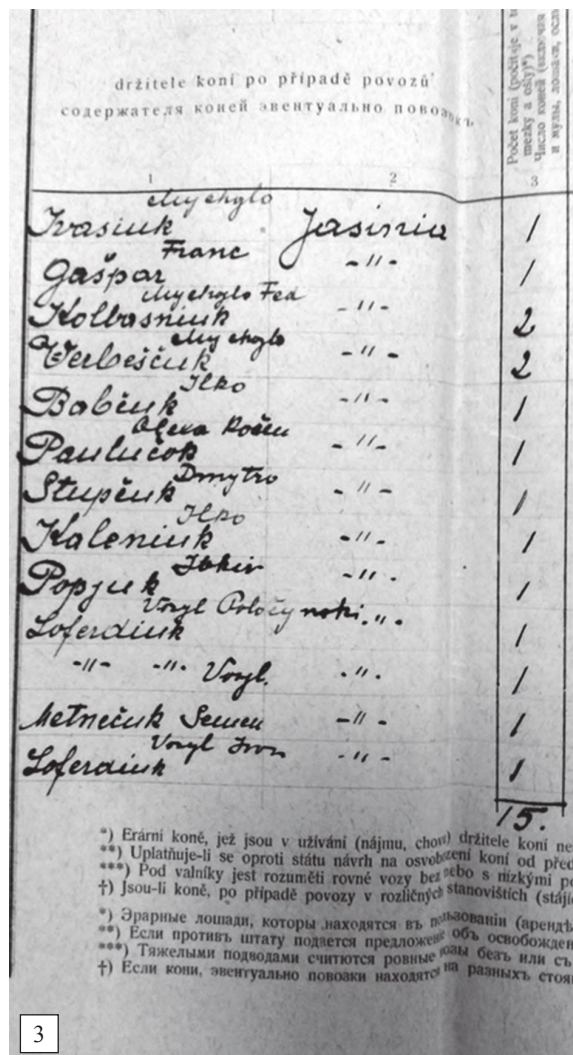 držitele koní po případě povozů
содержателя коней эвентуально повозокъ
Počet koní (počítaje v to
mezky a osly)*)
Число коней (включая
и мулы, лошаки, осл
1 2 3
Mychajlo
Ivasiuk Jasinia 1
Franc
Gašpar -"- 1
Mychajlo Fed
Kolbasniuk -"- 2
Mychajlo
Verbeščuk -"- 2
Ilko
Babčuk -"- 1
Olexa
Paulučok -"- 1
Dmytro
Stupčuk -"- 1
Ilko
Kaleniuk -"- 1
Popjuk -"- 1
Vasyl
Loferdiuk -"- 1
-"- -"- Vasyl. -"- 1
Metnečuk Semen -"- 1
Vasyl Ivan
Loferdiuk -"- 1
15.
*) Erární koně, jež jsou v užívání (nájmu, chově) držitele koní ne
**) Uplatňuje-li se oproti státu návrh na osvobození koní od před
***) Pod valníky jest rozuměti rovné vozy bez nebo s nízkými po
†) Jsou-li koně, po případě povozy v rozličných stanovištích (stájíc
*) Эрарные лошади, которы находятся въ пользованіи (арендѣ
**) Если противъ штату подается предложене объ освобожден
***) Тяжелыми подводами считются ровные возы безъ или съ
†) Если кони, эвентуально повозки находятся на разныхъ стоян
3